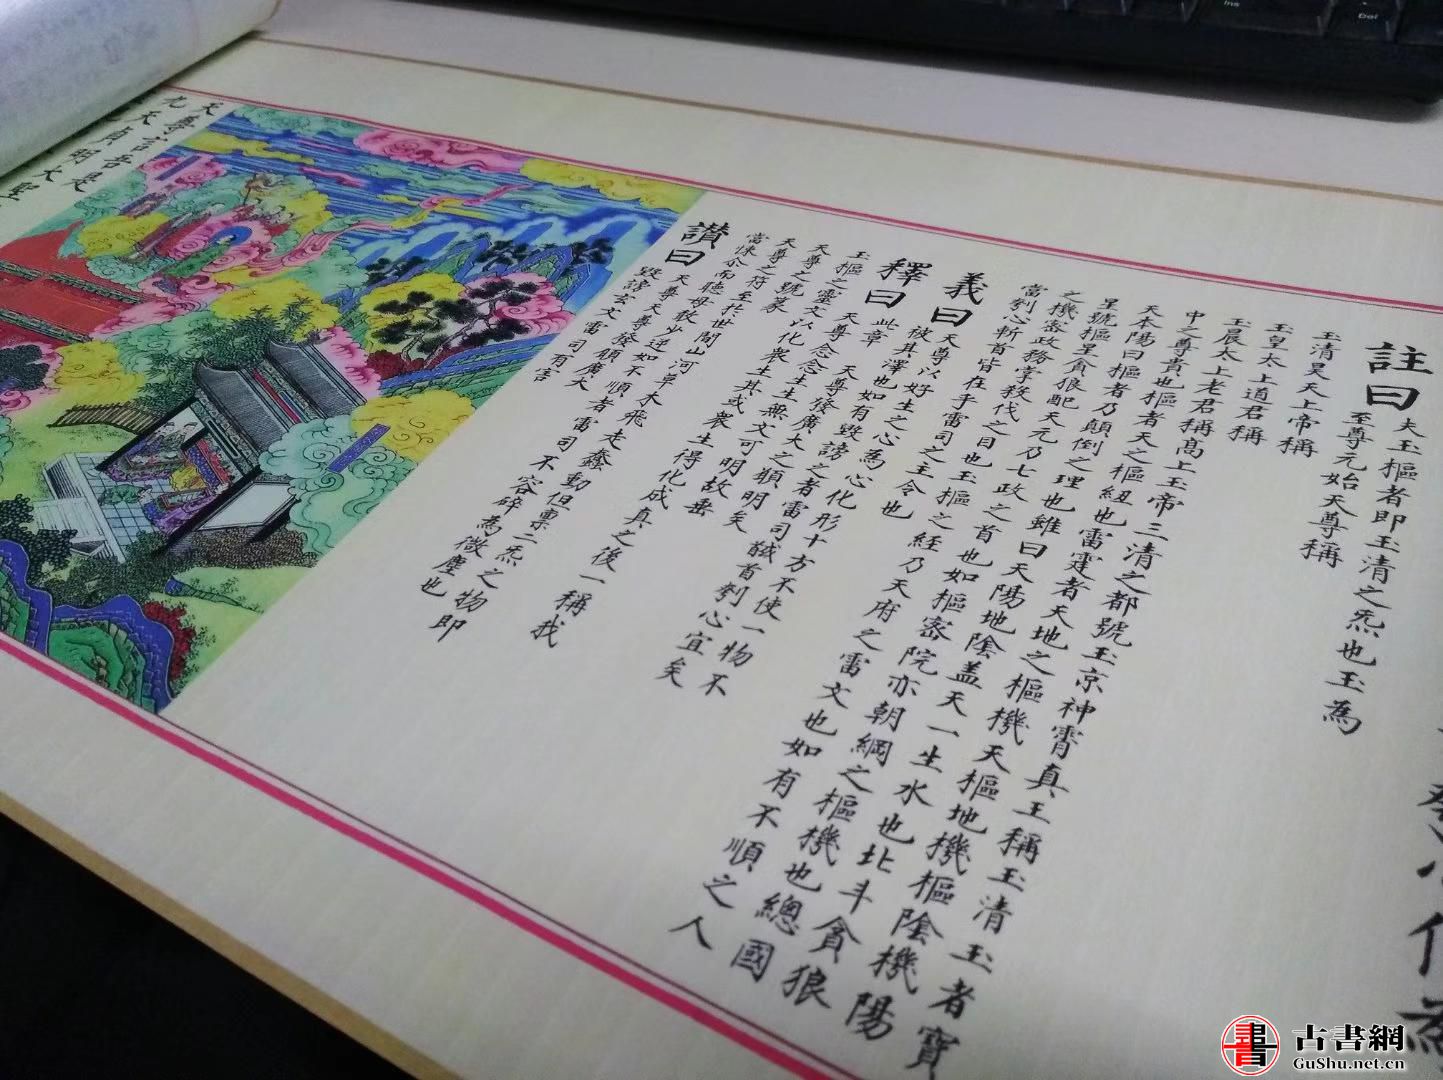 註曰 夫玉樞者即玉清之炁也玉為
至尊元始天尊稱
玉清昊天上帝稱
玉皇太上道君稱
玉晨太上老君稱高上玉帝三清之都號玉京神霄真王稱玉清玉者寶
中之尊貴也樞者天之樞紐也雷霆者天地之樞機天樞地機樞陰機陽
天本陽曰樞者乃顛倒之理也雖曰天陽地陰盖天一生水也北斗貪狼
星號樞星貪狼配天元乃七政之首也如樞密院亦朝綱之樞機也總國
之機密政務掌殺伐之目也玉樞之經乃天府之雷文也如有不順之人
當刳心斬首皆在乎雷司之主令也
義曰 天尊以好生之心為心化形十方不使一物不
被其澤也如有毀謗之者雷司馘首刳心宜矣
釋曰 此章 天尊發廣大之願明矣
玉樞之靈文 天尊念念生生無文可明故垂
天尊之號以化眾生其或眾生得化成真之後一稱我
天尊之符篆至於世間山河草木飛走蠢動但稟二炁之物即
當悚而聽毋敢少逆如不順者雷司不容碎為微塵也
讚曰 天尊天尊發願廣大
毀謗玄文雷司有害
天尊言吾是
九天貞明大聖
Ins
Del
古書網
GuShu.net.cn